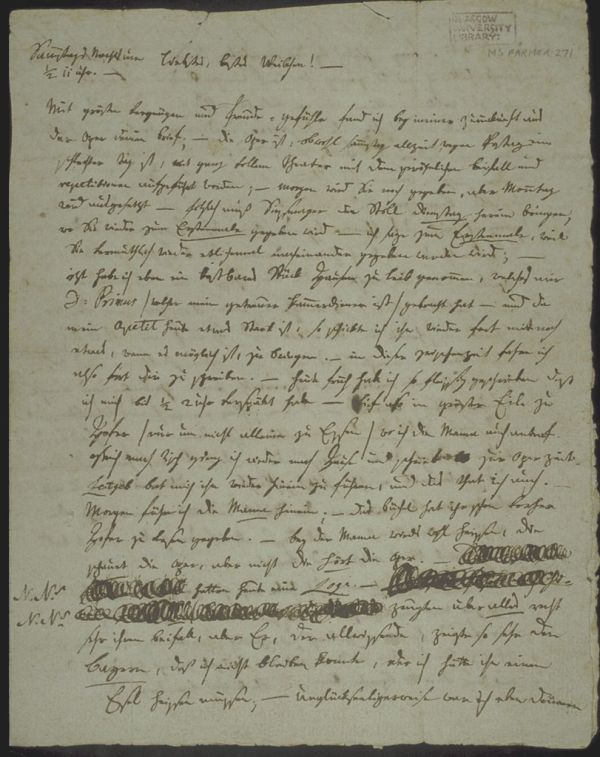 GLASGOW
UNIVERSITY
LIBRARY:
MS FARMER 271
Samstag Nachts um
½ 11 uhr. — Liebstes, bestes Weibchen! —
Mit grösten Vergnügen und Freude-gefühle fand ich bey meiner zurückkunft aus
der Oper deinen brief; — die Oper ist, obwohl samstag allzeit wegen Postag ein
schlechter tag ist, mit ganz vollem theater mit dem gewöhnlichen beifall und
repetitionen aufgeführt worden; — morgen wird sie noch gegeben, aber Monntag
wird ausgesetzt — folglich muß Siessmayer den Stoll dienstag herein bringen,
wo sie wieder zum Erstenmale gegeben wird — ich sage zum Erstenmale, weil
sie vermuthlich wieder etlichemal nacheinander gegeben werden wird; —
itzt habe ich eben ein kostbares Stück Hausen zu leib genommen, welches mir
D: Primus /welcher mein getreuer kammerdiener ist/ gebracht hat — und da
mein Apetit heute etwas stark ist, so schickte ich ihn wieder fort mir noch
etwas, wenn es möglich ist, zu bringen. — in dieser zwischenzeit fahre ich
also fort dir zu schreiben. — heute früh habe ich so fleissig geschrieben daß
ich mich bis ½ 2 uhr verspätet habe — lief also in gröster Eile zu
Hofer /nur um nicht alleine zu Essen/ wo ich die Mama auch antraf.
gleich nach tisch gieng ich wieder nach Hause und schrieb bis zur Oper zeit.
Leitgeb bat mich ihn wieder hinein zu führen, und das that ich auch. —
Morgen führe ich die Mama hinein; — das büchel hat ihr schon vorher
Hofer zu lesen gegeben. — bey der Mama wirds wohl heissen, die
schauet die oper, aber nicht die hört die oper. —
N.N.s hatten heute eine Loge. —
N.N.s zeigten über alles recht
sehr ihren beifall, aber Er, der allwissende, zeigte so sehr den
bayern, daß ich nicht bleiben konnte, oder ich hätte ihn einen
Esel heissen müssen; — Unglückseeligerweise war ich eben drinnen